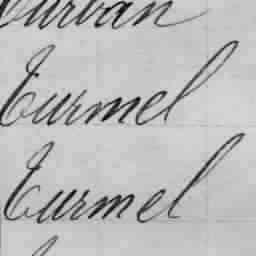 Turban
Turmel
Turmel